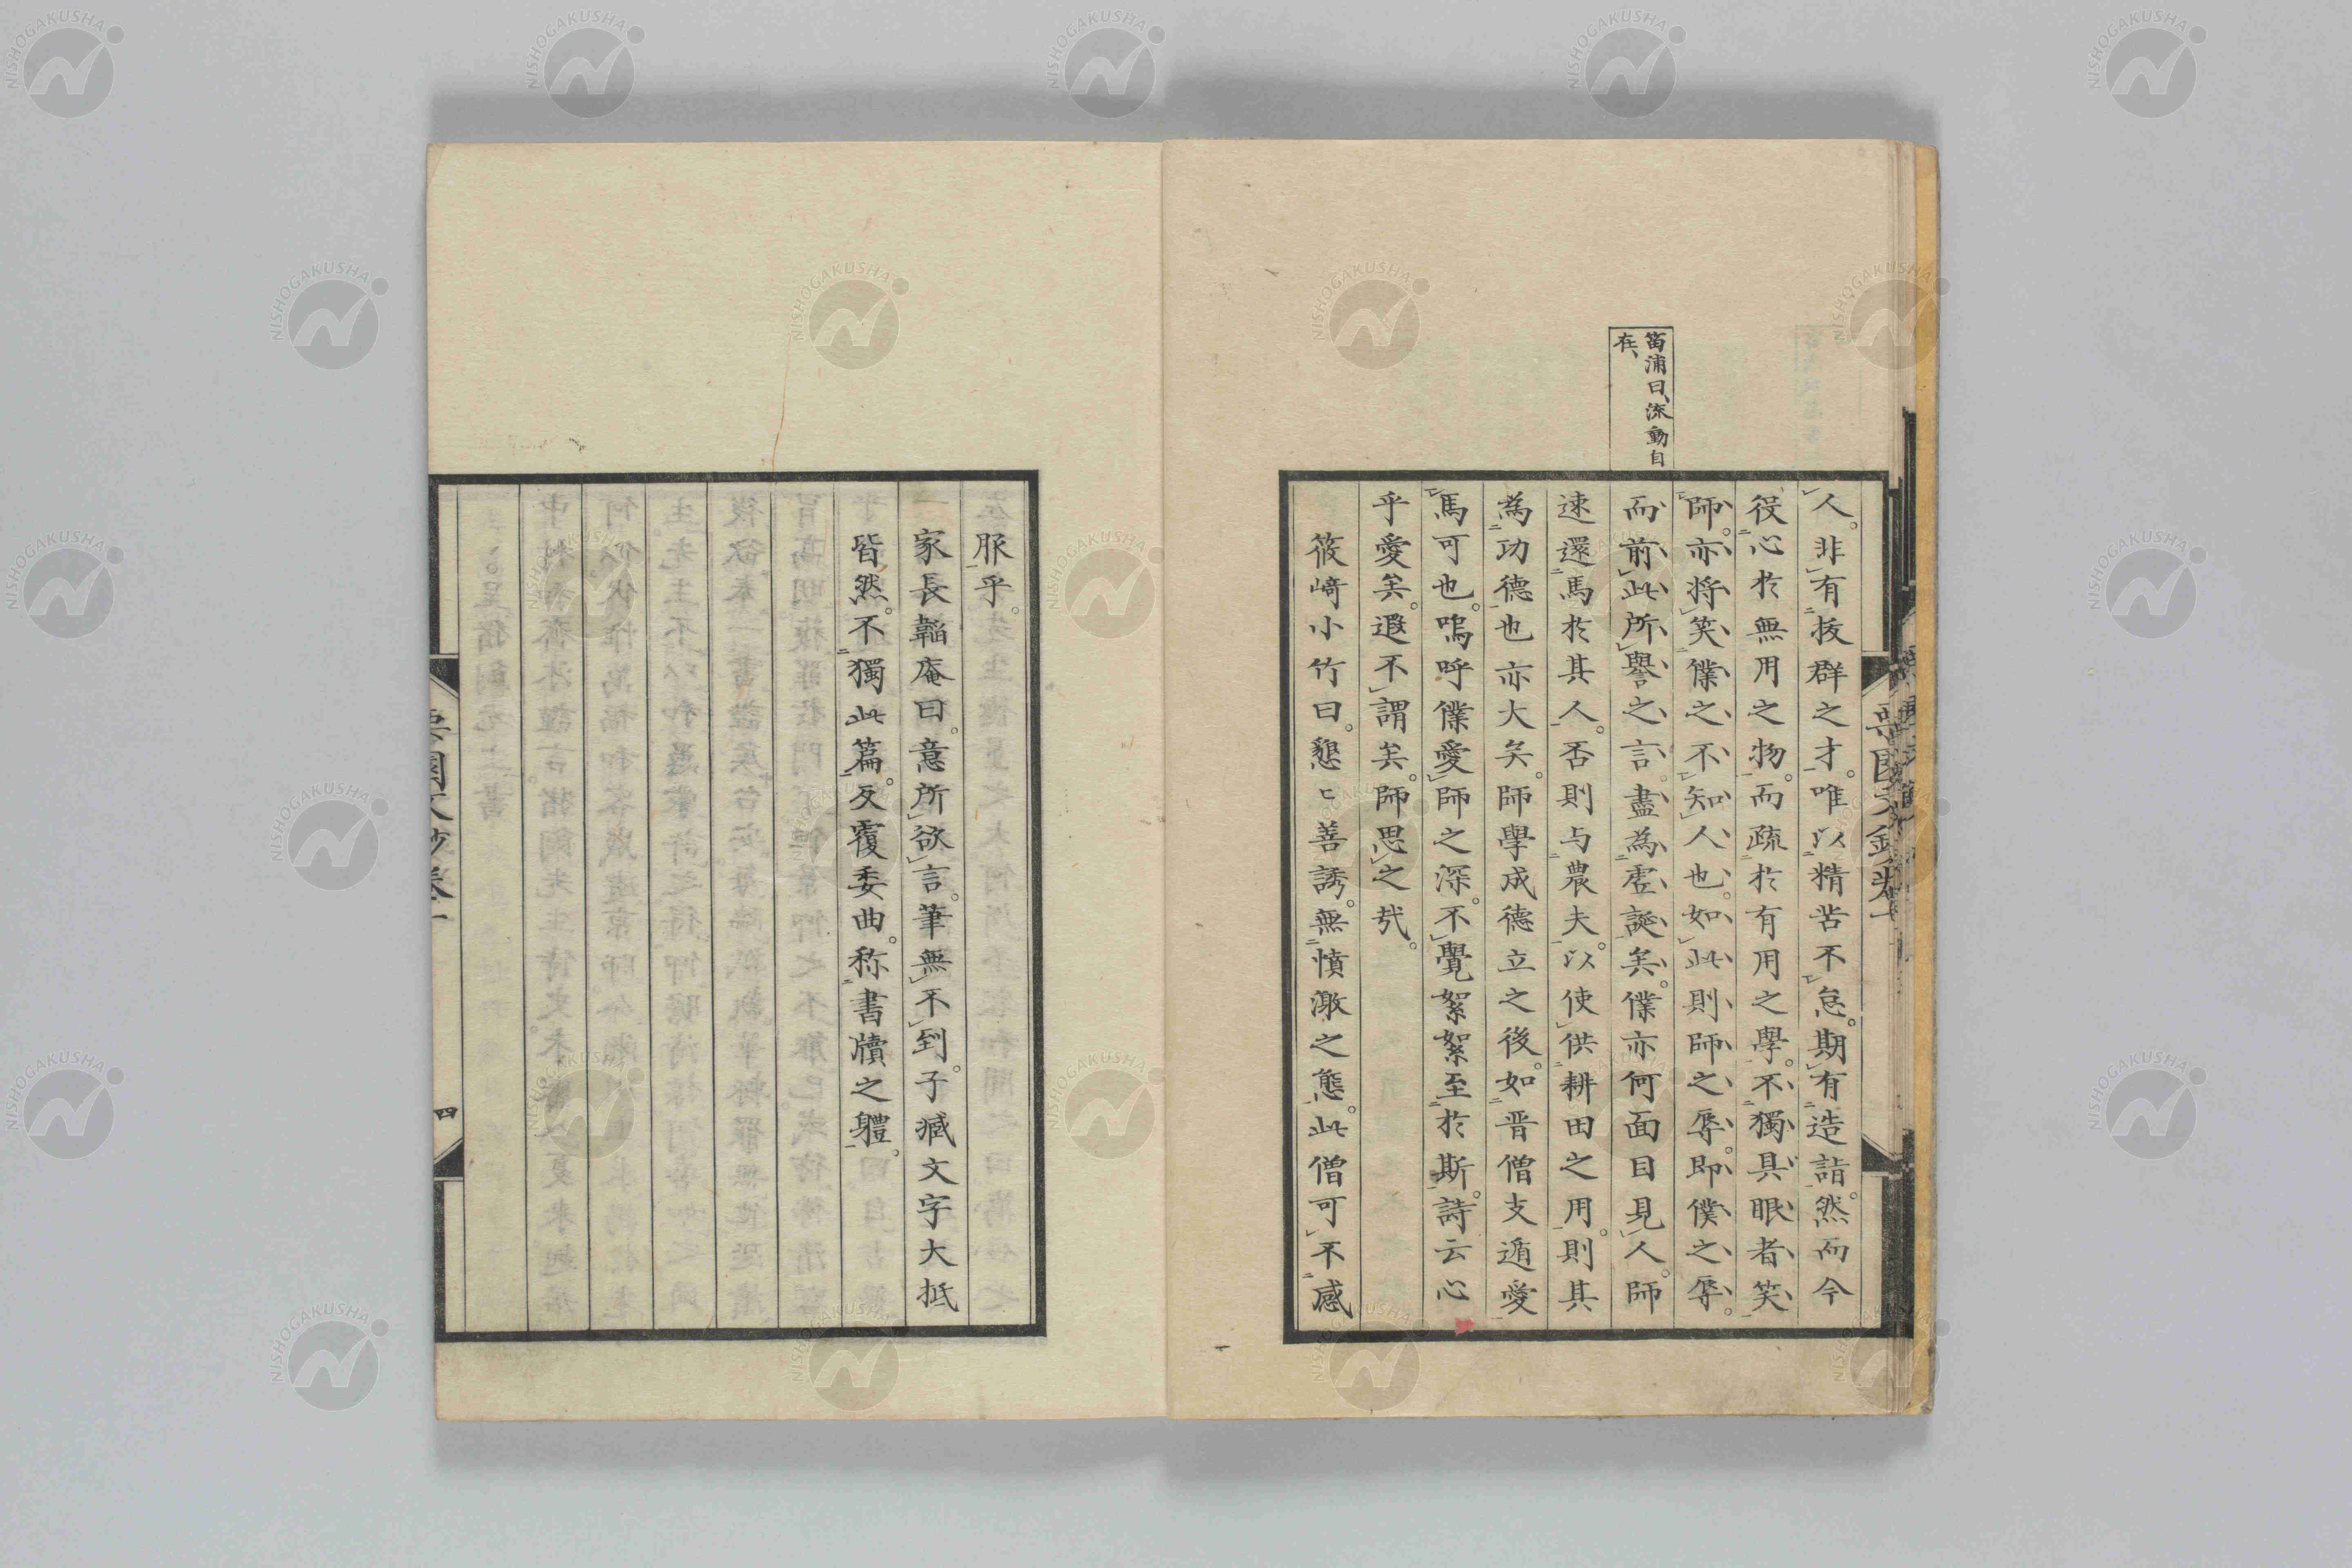 人。非有抜群之才。唯以精苦不怠。期有造詣。然而今
役心於無用之物。而疏於有用之學。不獨具眼者笑
師。亦将笑僕之不知人也。如此則師之辱。即僕之辱。
而前此所譽之言。盡為虗誕矣。僕亦何面目見人。師
速還馬於其人。否則与農夫。以使供耕田之用。則其
為功德也亦大矣。師學成德立之後。如晋僧支遁愛
馬可也。嗚呼僕愛師之深。不覺絮絮至於斯。詩云心
乎愛矣。遐不謂矣。師思之哉。
筱﨑小竹曰。懇〻善誘。無憤激之態。此僧可不感
苗浦曰、流動自
在、
服乎。
家長韜庵曰。意所欲言。筆無不到。子臧文字大抵
皆然。不獨此篇。反覆委曲。称書牘之軆。
四
NISHOGAKUSHA